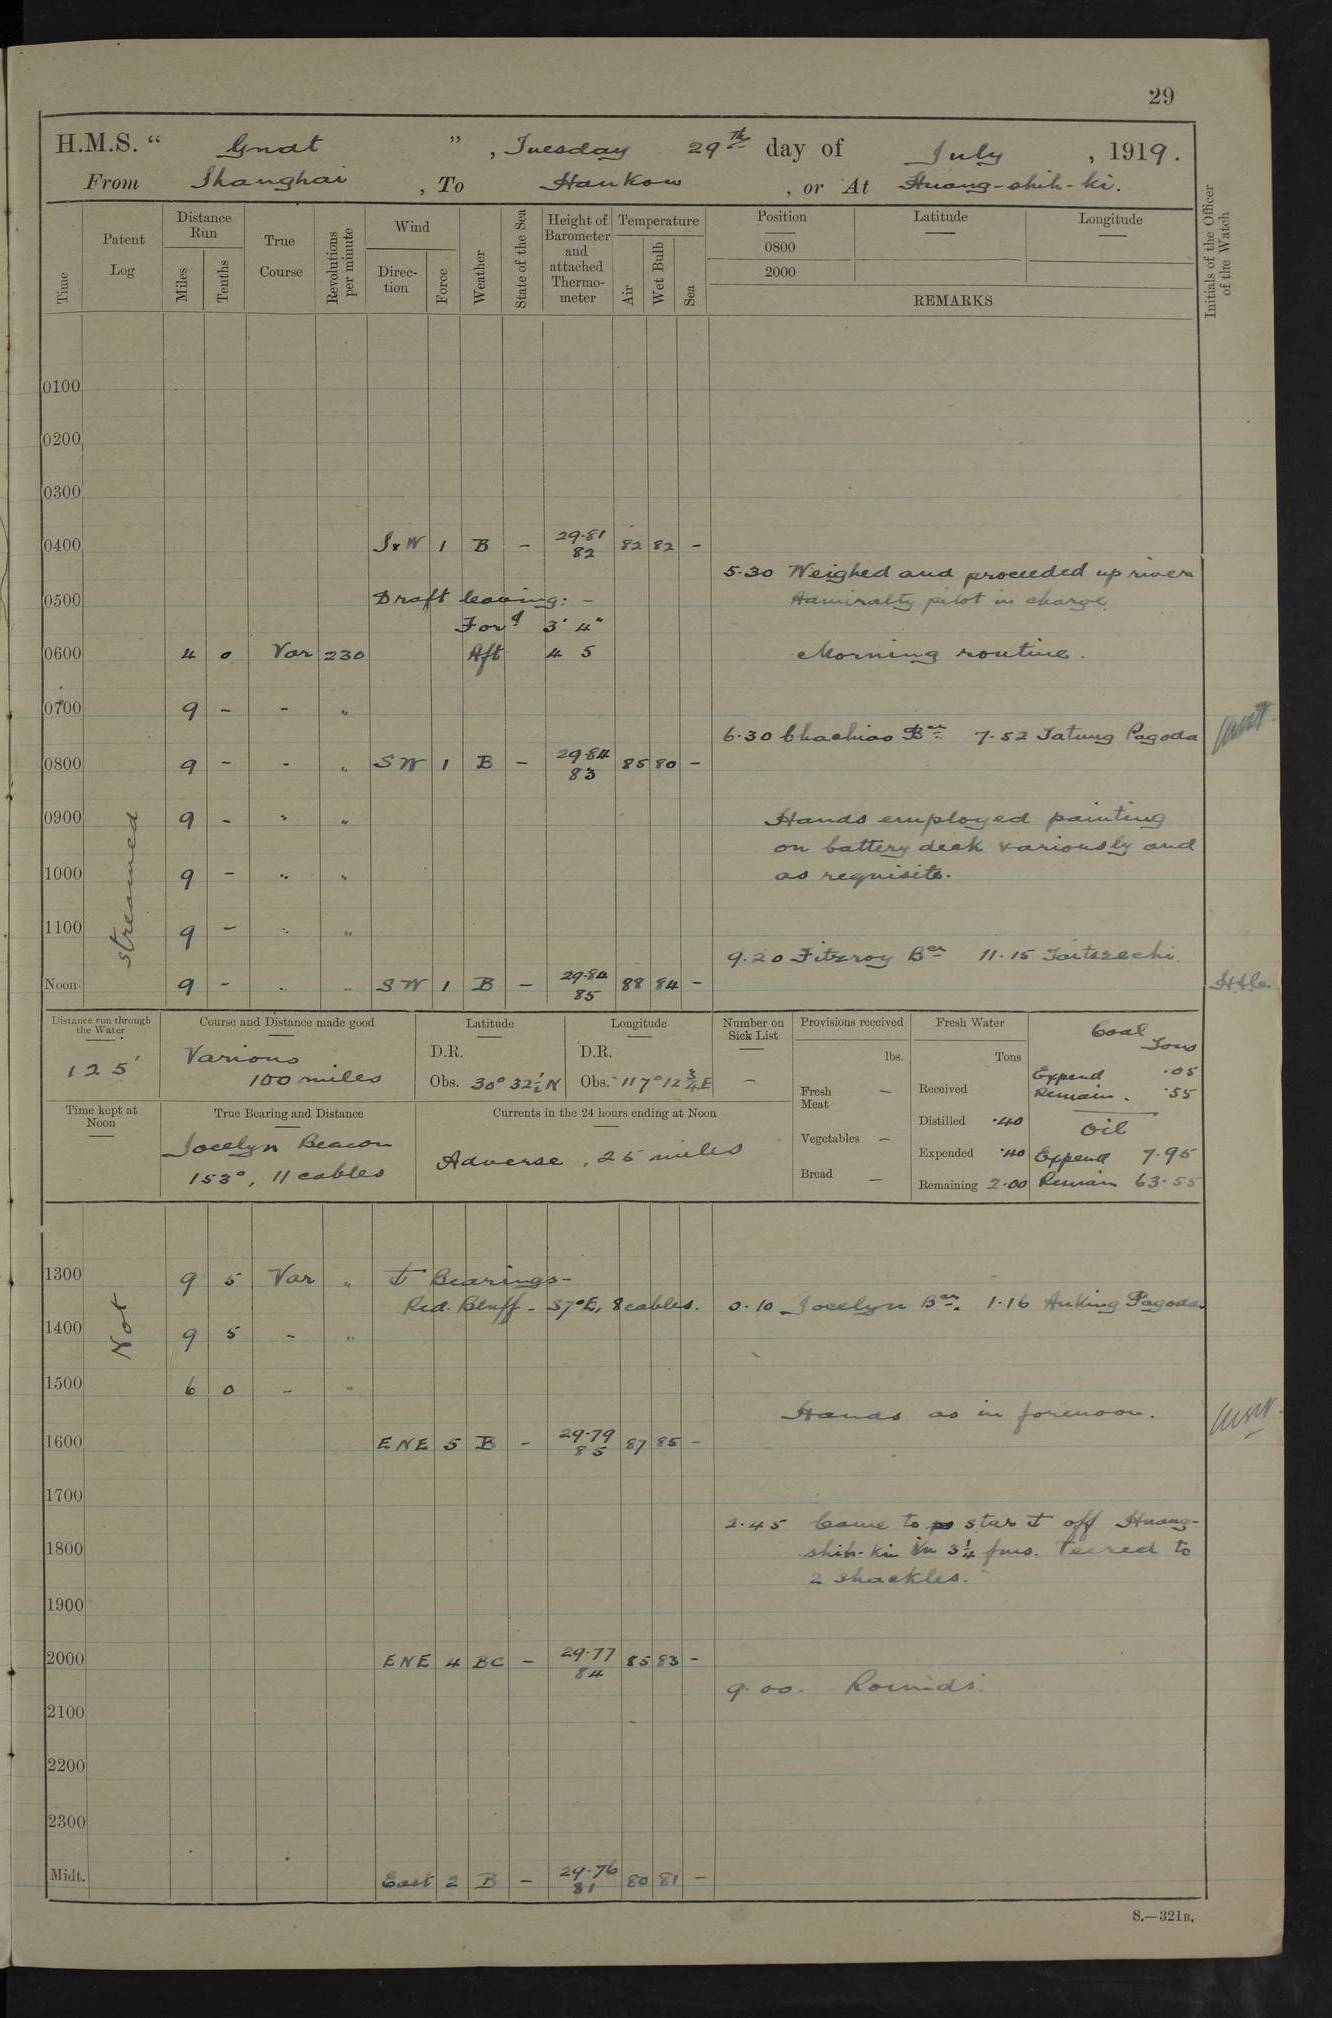 29
H.M.S. “ Gnat ” , Tuesday 29th day of July , 1919.
From Shanghai , To Hankow , or At Huang-shih-ki.
Time
Patent Log
Distance Run
Miles
Tenths
True Course
Revolutions per minute
Wind
Direc- tion
Force
Weather
State of the Sea
Height of Barometer and attached Thermo- meter
Temperature
Air
Wet Bulb
Sea
Position
0800
2000
Latitude
Longitude
REMARKS
Initials of the Officer of the Watch
0100
0200
0300
0400 SxW 1 B - 29.81 82 82 82 -
5.30 Weighed and proceeded up river
0500 Draft leaving: - Admiralty pilot in charge.
Ford 3' 4"
0600 4 0 Var 230 Aft 4 5 Morning routine.
0700 9 - - "
6.30 Chachiao Bn 7.52 Tatung Pagoda
0800 9 - - " SW 1 B - 29.84 83 85 80 -
0900 9 - " " Hands employed painting
on battery deck variously and
1000 9 - " " as requisite.
1100 9 - " "
9.20 Fitzroy Bn 11.15 Taitszechi.
Noon 9 - " " SW 1 B - 29.84 85 88 84 -
streamed
Distance run through the Water
125'
Course and Distance made good
Various
100 miles
Latitude
D.R.
Obs. 30° 32½ N
Longitude
D.R.
Obs. 117° 12¾ E
Number on Sick List
-
Provisions received
lbs.
Fresh Meat -
Vegetables -
Bread -
Fresh Water
Tons
Received
Distilled .40
Expended .40
Remaining 2.00
Coal
Tons
Expend .05
Remain. .55
Oil
Expend 7.95
Remain 63.55
Time kept at Noon
True Bearing and Distance
Jocelyn Beacon
153°, 11 cables
Currents in the 24 hours ending at Noon
Adverse, 25 miles
1300 9 5 Var " Bearings-
Red. Bluff - S7°E, 8 cables. 0.10 Jocelyn Bn. 1.16 Anking Pagoda
1400 9 5 - "
Not
1500 6 0 - "
Hands as in forenoon.
1600 ENE 5 B - 29.79 85 87 85 -
1700
2.45 Came to star off Huang-
1800 shih-kie in 3¼ fms. Veered to
2 shackles.
1900
2000 ENE 4 BC - 29.77 84 85 83 -
9.00. Rounds.
2100
2200
2300
Midt. East 2 B - 29.76 81 80 81 -
S.—321B.